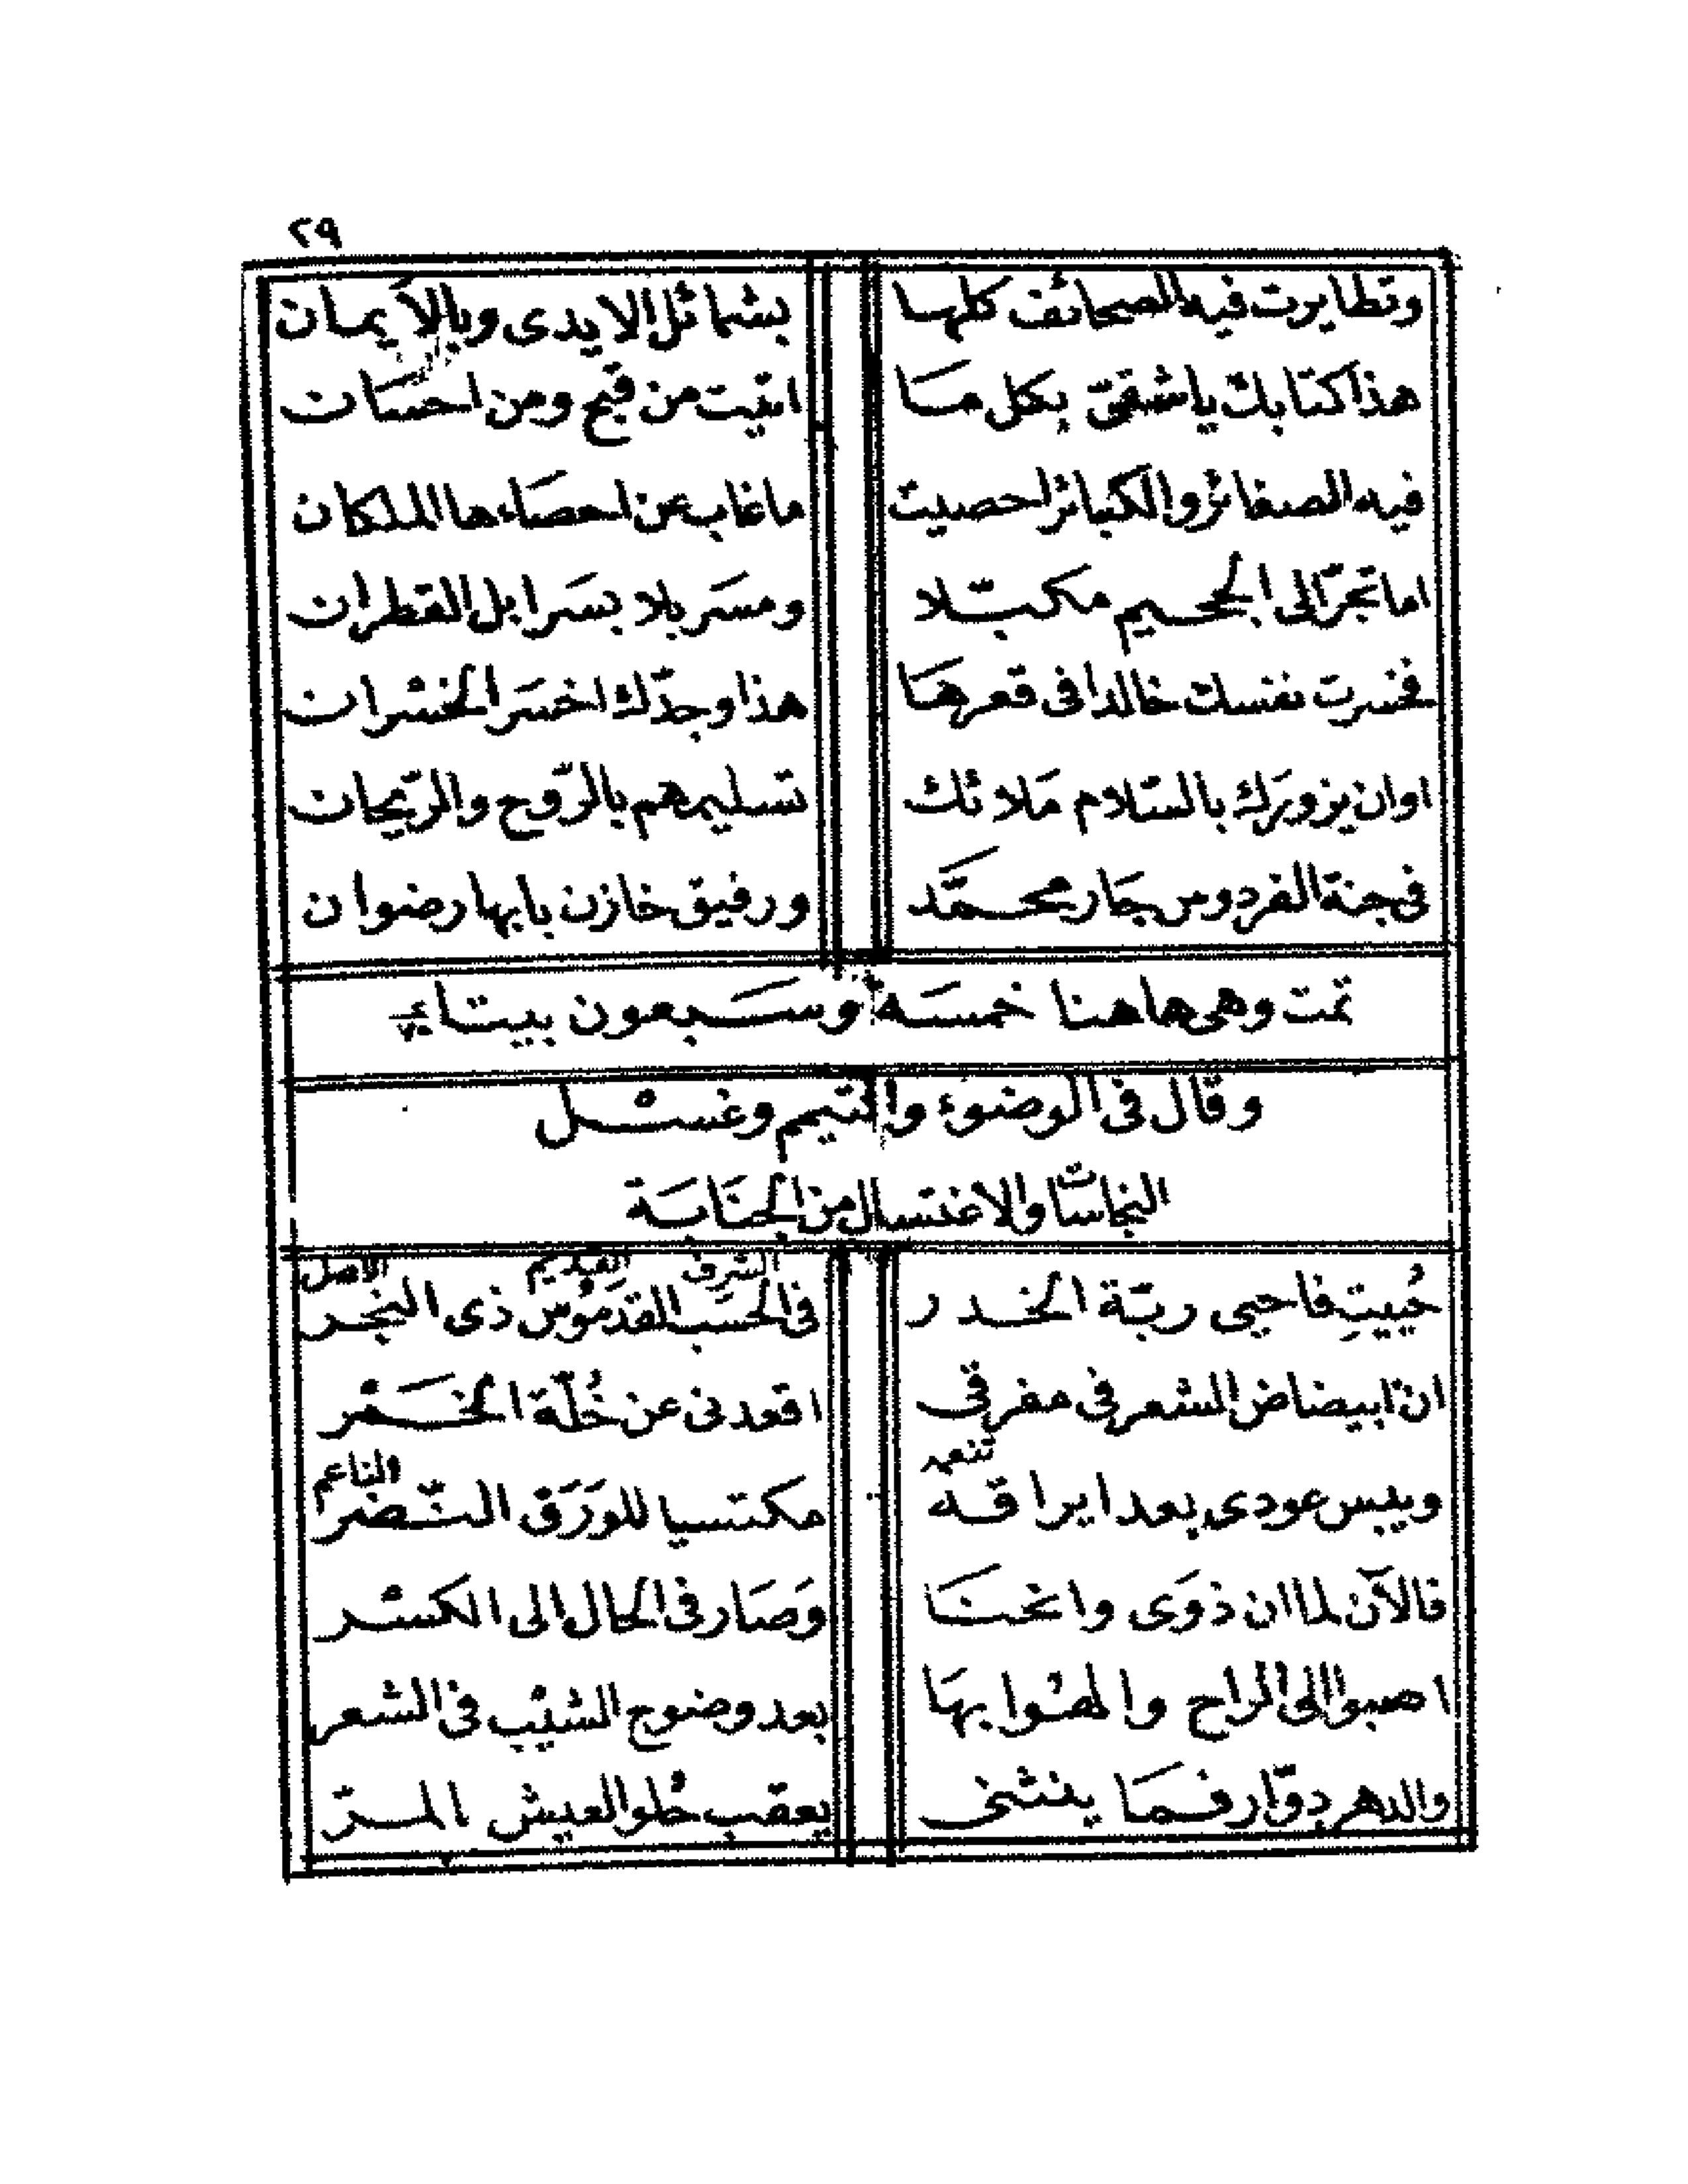 ٢٩
وتطايرت فيه الصحائف كلها بشمائل الايدى وبالأيمان
هذا كتابك يا شقىّ بكل مَا اتيت من قبح ومن احسَان
فيه الصغائر والكبائر احصيت ما غاب عن احصَاءها الملكان
اما تجرّ الى الجحيم مكبّلا ومسَربلا بسَرابل القطران
فخسرت نفسك خالدا فى قعرهَا هذا وجدّك اخسَر الخسْران
او ان يزورَك بالسّلام مَلائك تسليمهم بالرّوح والرّيحان
فى جنة الفردوس جَار محمَّد ورفيق خازن بابها رضوان
تمت وهى هاهنا خمسَة وسَبعون بيتا
وقال فى الوضوء والتيمم وغسْل
النجاسات والاغتسال من الجنَابَة
الشرف القديم الاصل
حُييتِ فاحيى ربّة الخدر فى الحسَب القدمُوس ذى النجْر
ان ابيضاض الشعر فى مفرقى اقعدنى عن خُلّة الخَمْر
تنعمه الناعم
ويبس عودى بعد ايراقه مكتسيا للوَرَق النّضر
فالآن لما ان ذوَى وانحنَا وَصَار فى الحال الى الكسْر
اصبوا الى الراح والهْوا بهَا بعد وضوح الشيْب فى الشعر
والدهر دوّار فمَا ينثنى يعقب حُلو العيش بالمرّ